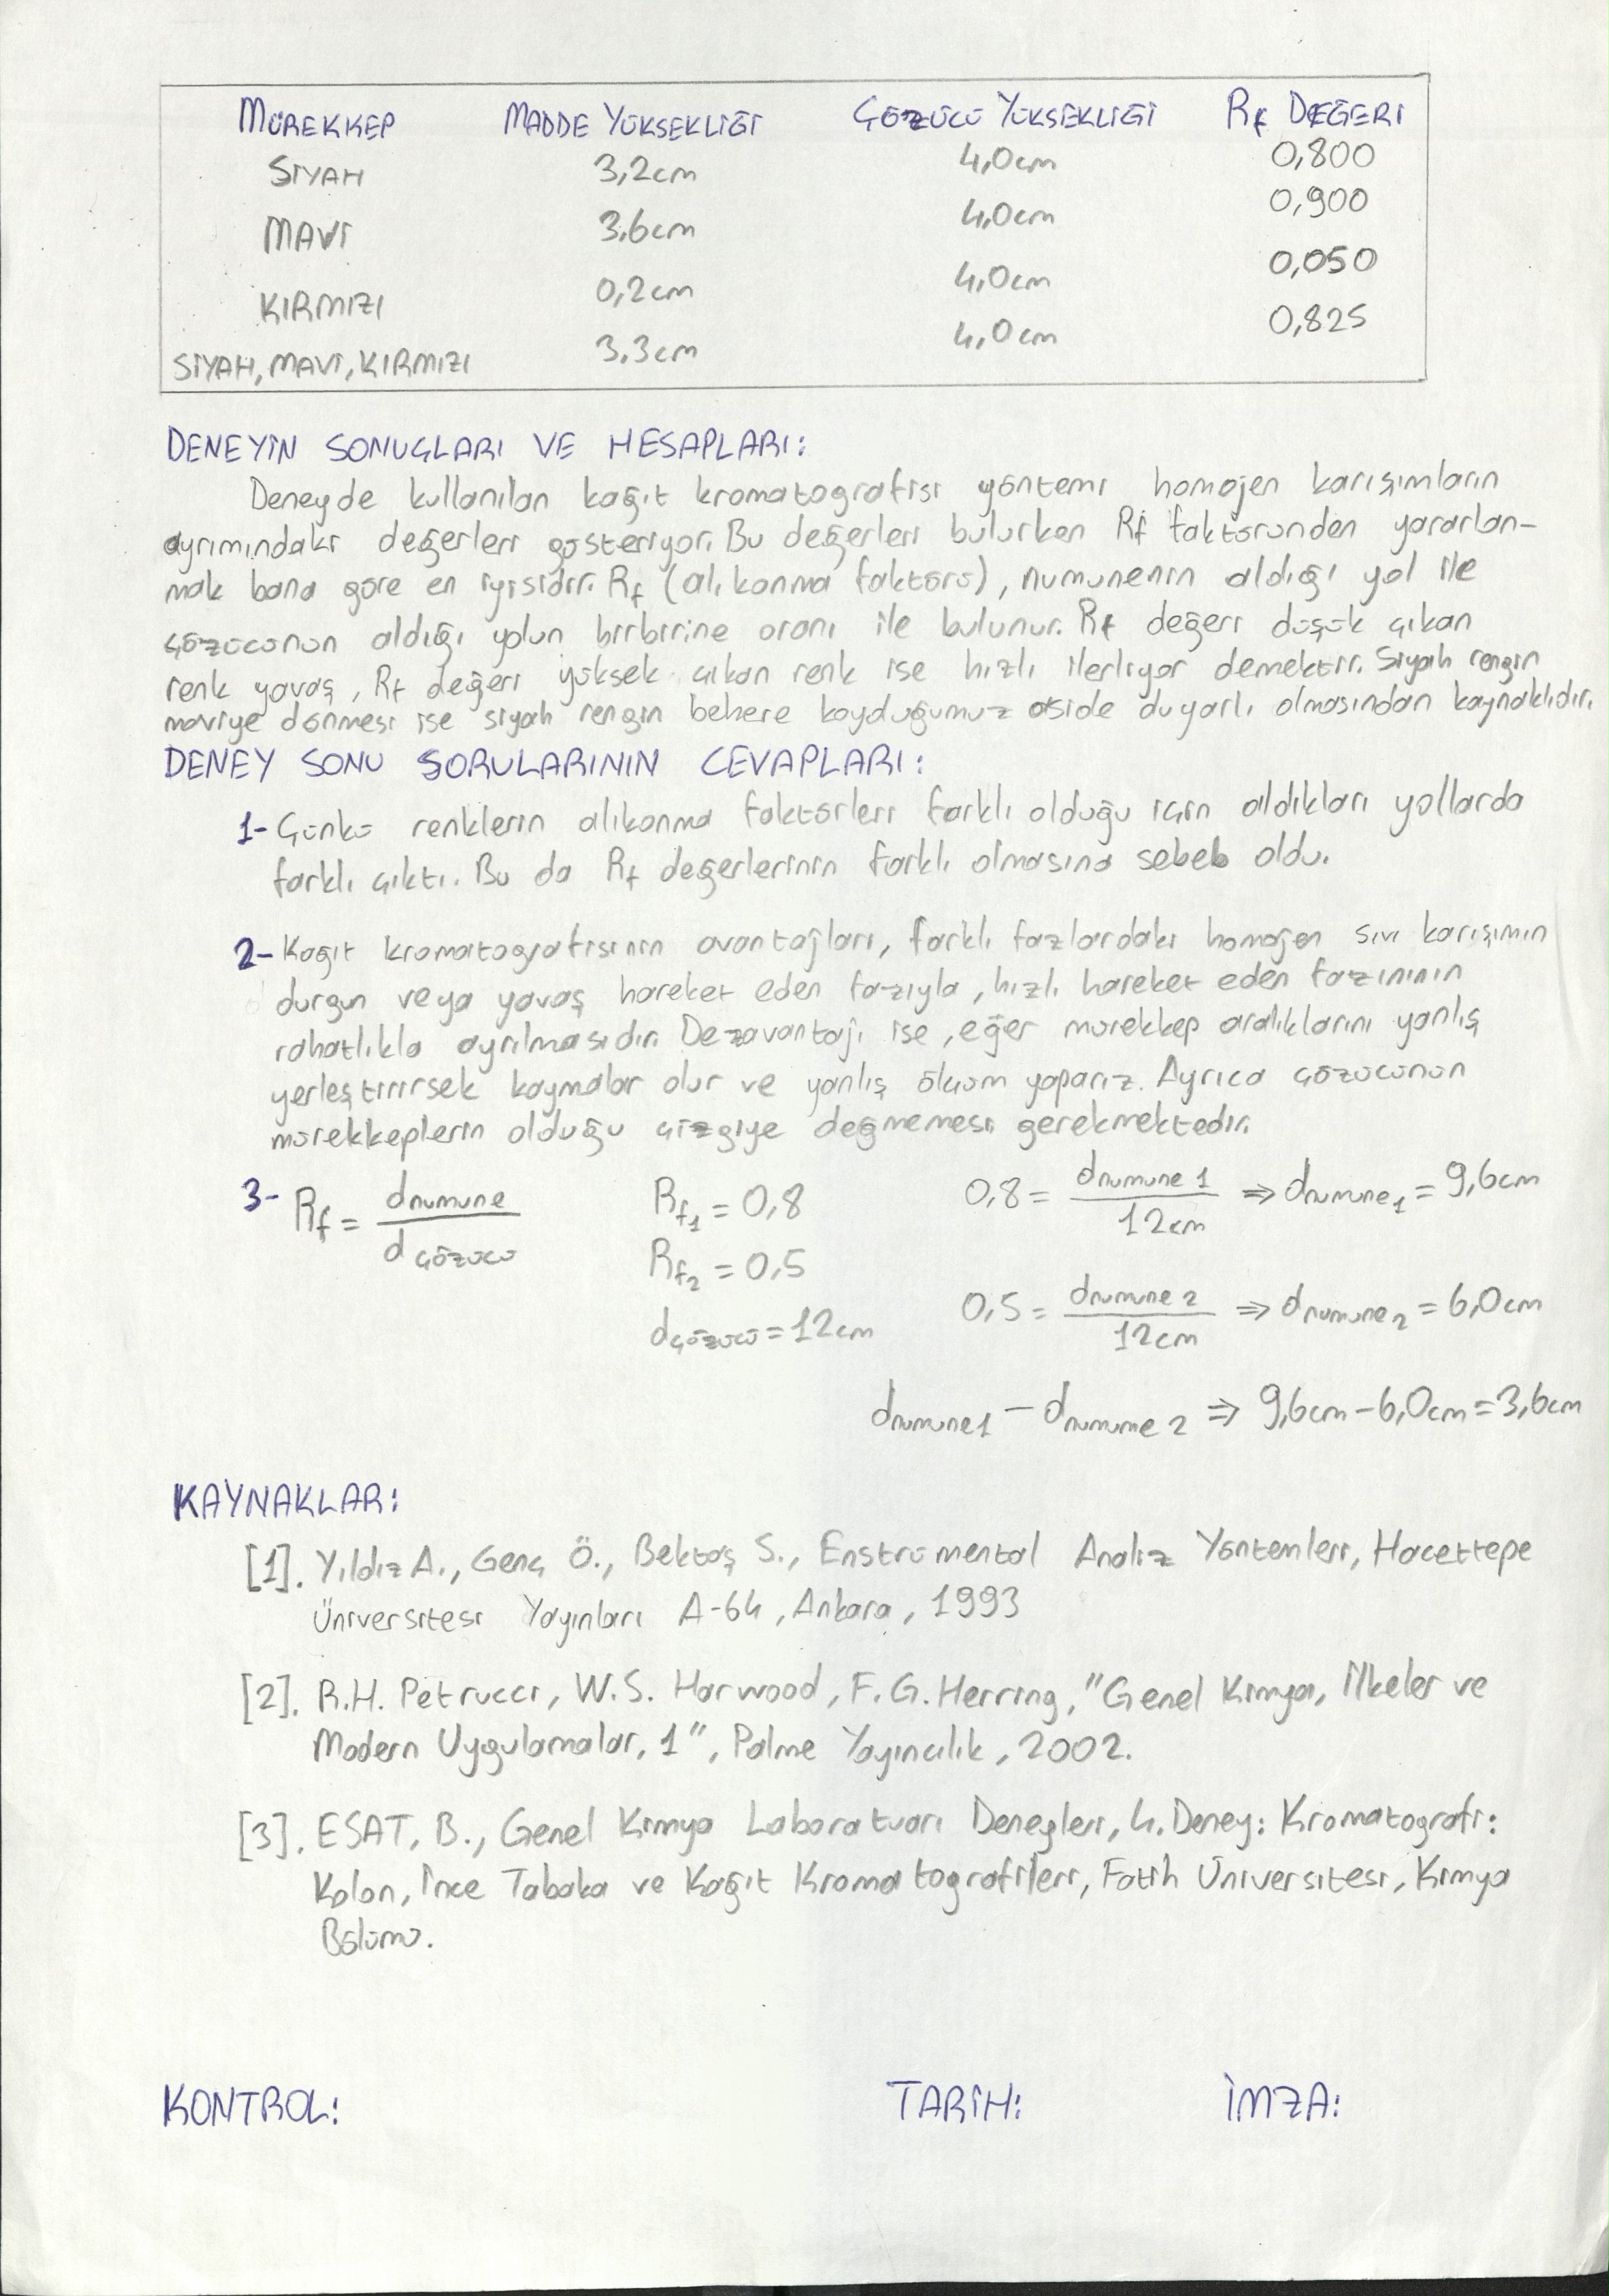 MÜREKKEP MADDE YÜKSEKLİĞİ ÇÖZÜCÜ YÜKSEKLİĞİ Rf DEĞERİ
SİYAH 3,2cm 4,0cm 0,800
MAVİ 3,6cm 4,0cm 0,900
KIRMIZI 0,2cm 4,0cm 0,050
SİYAH, MAVİ, KIRMIZI 3,3cm 4,0cm 0,825
DENEYİN SONUÇLARI VE HESAPLARI:
Deneyde kullanılan kağıt kromatografisi yöntemi homojen karışımların
ayrımındaki değerleri gösteriyor. Bu değerleri bulurken Rf faktöründen yararlan-
mak bana göre en iyisidir. Rf (alıkonma faktörü), numunenin aldığı yol ile
çözücünün aldığı yolun birbirine oranı ile bulunur. Rf değeri düşük çıkan
renk yavaş, Rf değeri yüksek çıkan renk ise hızlı ilerliyor demektir. Siyah rengin
maviye dönmesi ise siyah rengin behere koyduğumuz aside duyarlı olmasından kaynaklıdır.
DENEY SONU SORULARININ CEVAPLARI:
1- Çünkü renklerin alıkonma faktörleri farklı olduğu için aldıkları yollarda
farklı çıktı. Bu da Rf değerlerinin farklı olmasına sebeb oldu.
2- Kağıt kromatografisinin avantajları, farklı fazlardaki homojen sıvı karışımın
durgun veya yavaş hareket eden fazıyla, hızlı hareket eden fazınının
rahatlıkla ayrılmasıdır. Dezavantajı ise, eğer mürekkep aralıklarını yanlış
yerleştirirsek kaymalar olur ve yanlış ölçüm yaparız. Ayrıca çözücünün
mürekkeplerin olduğu çizgiye değmemesi gerekmektedir.
3- Rf = dnumune / dçözücü Rf1 = 0,8 0,8 = dnumune 1 / 12cm ⇒ dnumune1 = 9,6cm
Rf2 = 0,5
dçözücü = 12cm 0,5 = dnumune 2 / 12cm ⇒ dnumune2 = 6,0cm
dnumune1 − dnumune 2 ⇒ 9,6cm − 6,0cm = 3,6cm
KAYNAKLAR:
[1]. Yıldız A., Genç Ö., Bektaş S., Enstrümental Analiz Yöntemleri, Hacettepe
Üniversitesi Yayınları A-64, Ankara, 1993
[2]. R.H. Petrucci, W.S. Harwood, F.G. Herring, "Genel Kimya, İlkeler ve
Modern Uygulamalar, 1", Palme Yayıncılık, 2002.
[3]. ESAT, B., Genel Kimya Laboratuarı Deneyleri, 4. Deney: Kromatografi:
Kolon, İnce Tabaka ve Kağıt Kromatografileri, Fatih Üniversitesi, Kimya
Bölümü.
KONTROL: TARİH: İMZA: